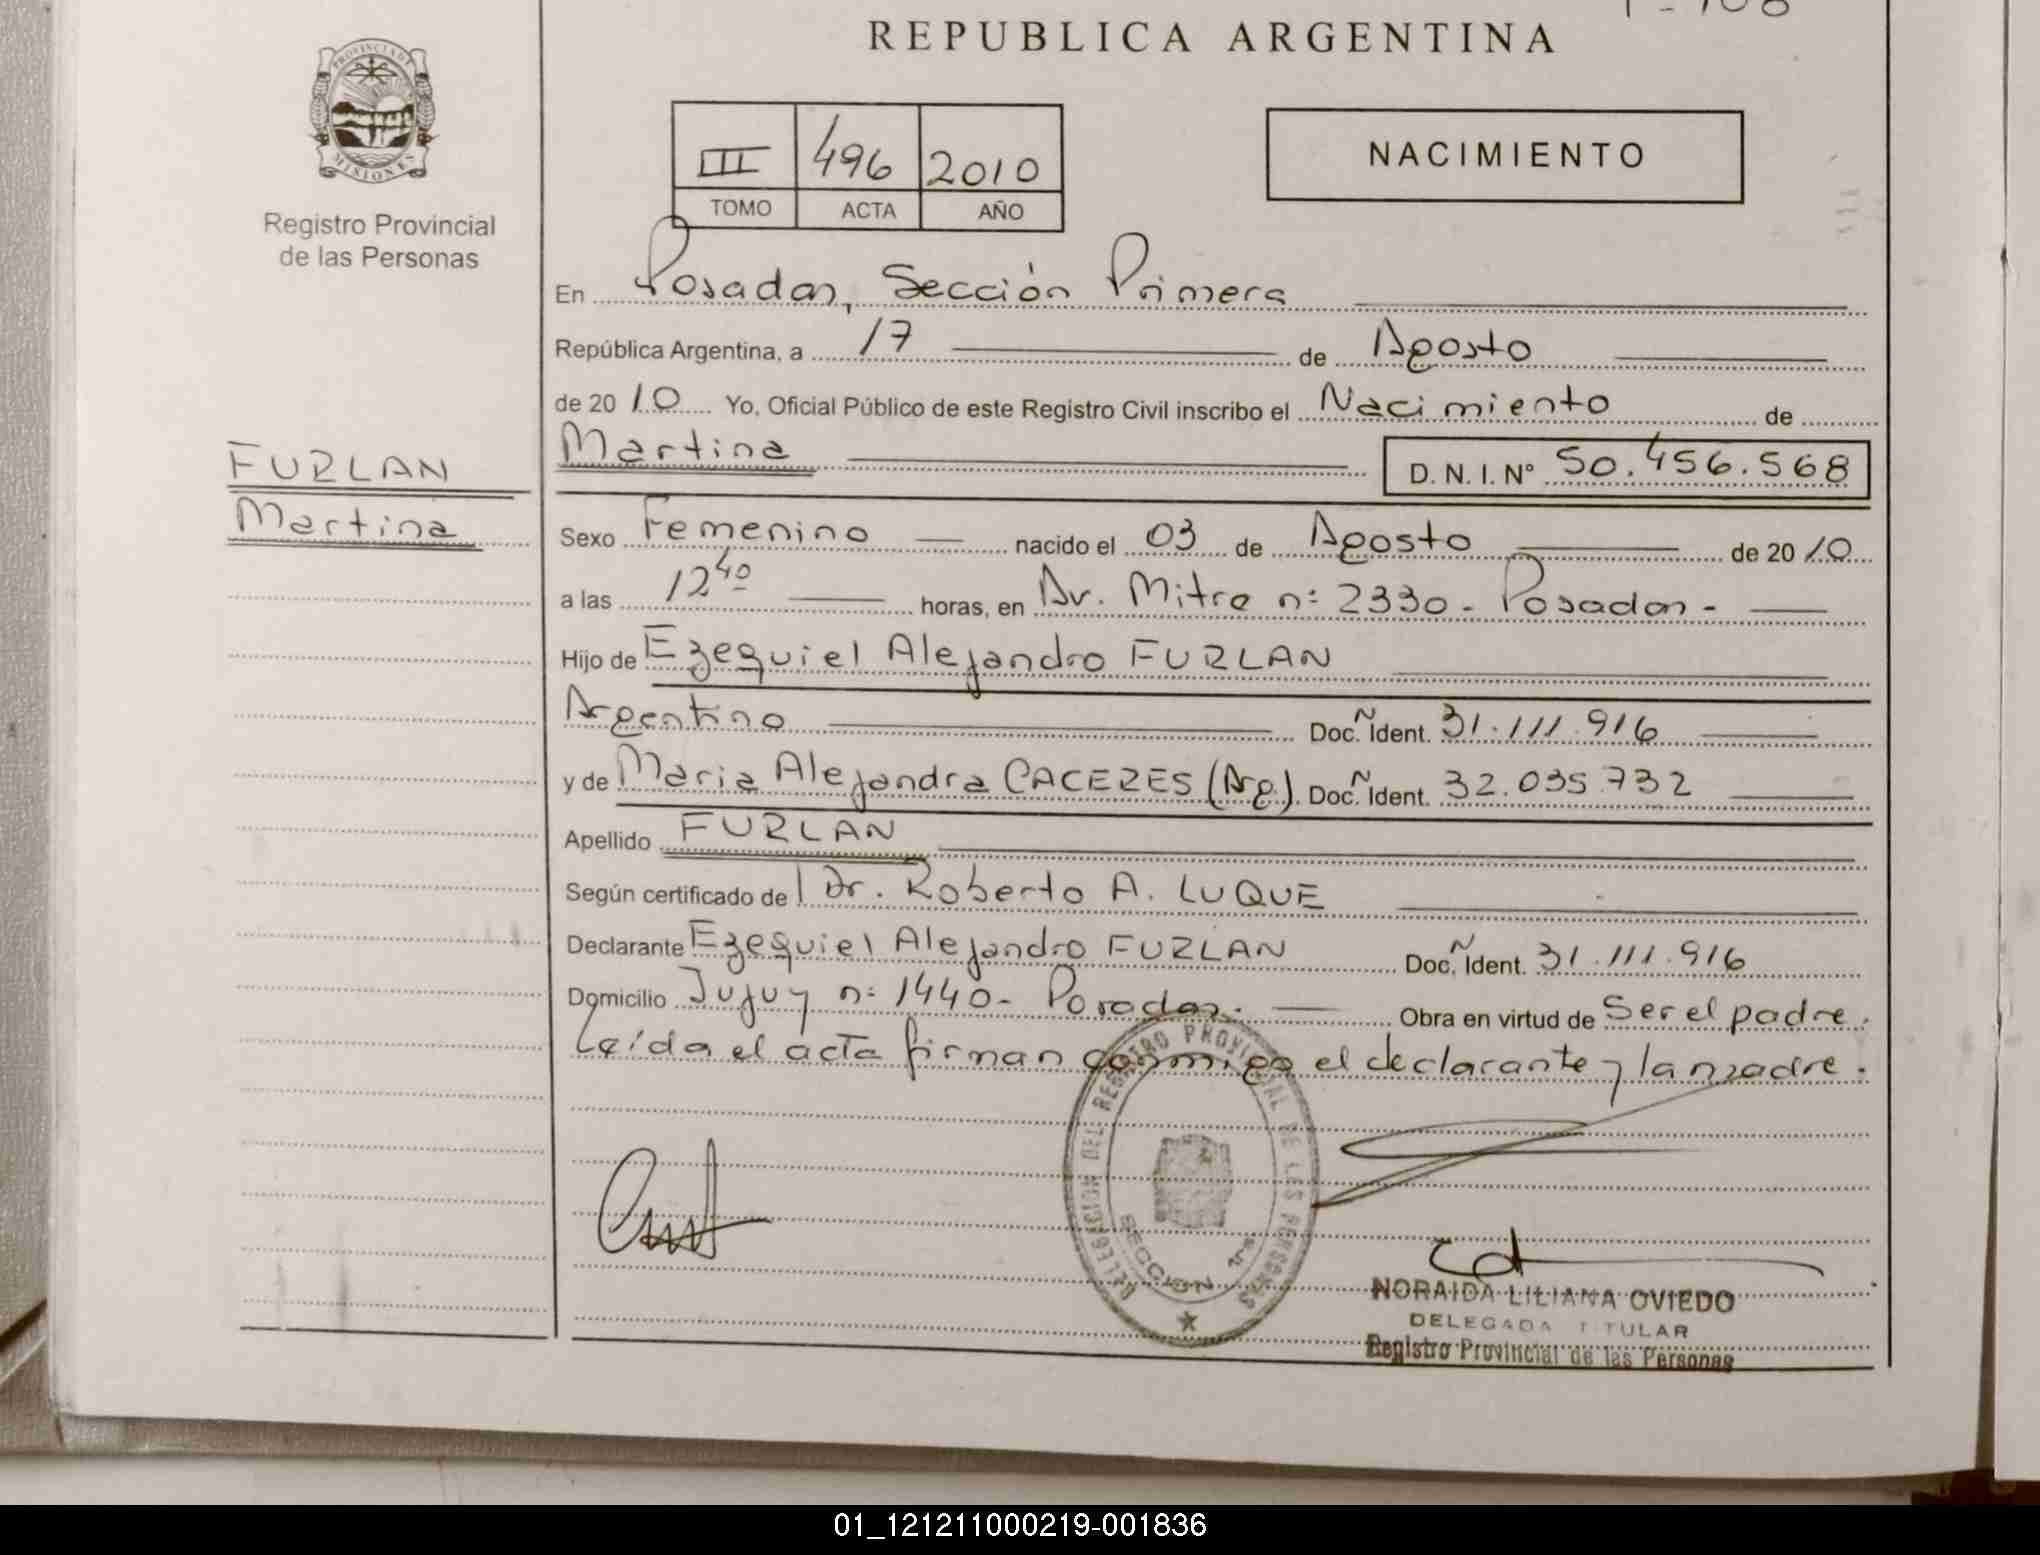 REPUBLICA ARGENTINA
PROVINCIA DE MISIONES
Registro Provincial
de las Personas
III 496 2010
TOMO ACTA AÑO
NACIMIENTO
En Posadas, Sección Primera
República Argentina, a 17 de Agosto
de 2010 Yo, Oficial Público de este Registro Civil inscribo el Nacimiento de
Martina D. N. I. Nº 50.456.568
FURLAN
Martina
Sexo Femenino nacido el 03 de Agosto de 2010
a las 12 40 horas, en Av. Mitre nº 2330- Posadas-
Hijo de Ezequiel Alejandro FURLAN
Argentino Doc. Ident. 31.111.916
y de Maria Alejandra CACERES (Arg). Doc. Ident. 32.035.732
Apellido FURLAN
Según certificado de Dr. Roberto A. LUQUE
Declarante Ezequiel Alejandro FURLAN Doc. Ident. 31.111.916
Domicilio Jujuy nº 1440- Posadas. Obra en virtud de Ser el padre.
Leída el acta firman conmigo el declarante y la madre.
DELEGACION DEL REGISTRO PROVINCIAL DE LAS PERSONAS
SECCION 1ra
NORAIDA LILIANA OVIEDO
DELEGADA TITULAR
Registro Provincial de las Personas
01_121211000219-001836